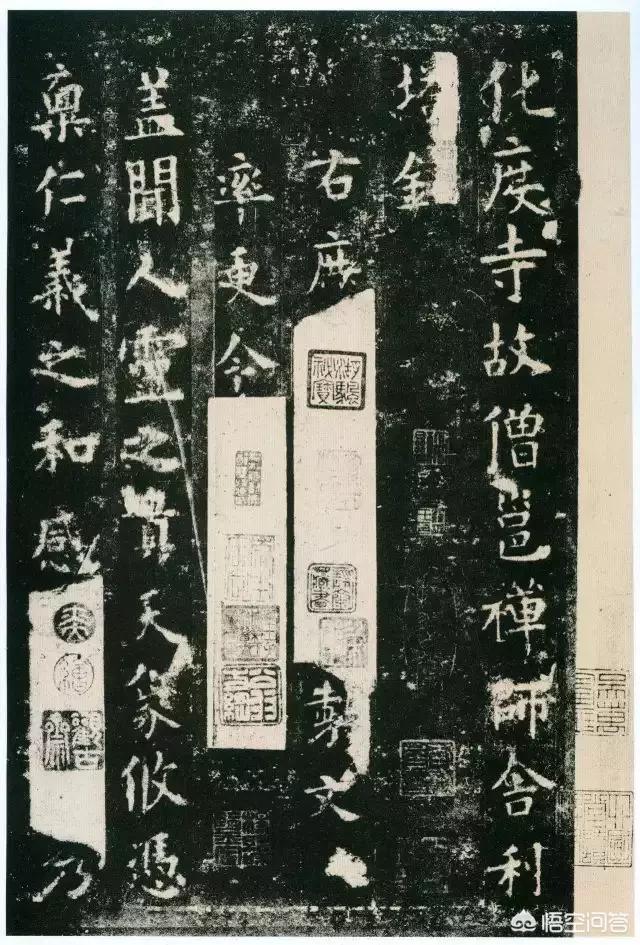 化度寺故僧邕禪師舍利
塔銘
右庶製文
率更令
蓋聞人靈之貴天象攸憑
稟仁義之和感乃
觀古齋
悟空问答